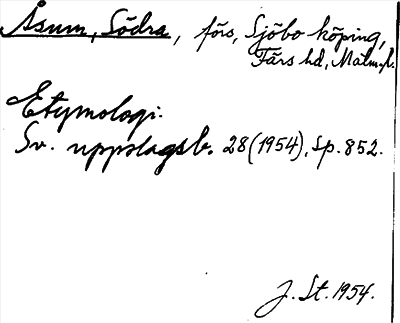 Åsum, Södra, förs, Sjöbo köping,
Färs hd, Malm. l.
Etymologi.
Sv. uppslagsb. 28 (1954), sp. 852.
J. St. 1954.